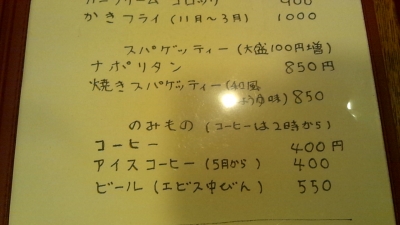 かきフライ (11月〜3月) 1000
スパゲッティー (大盛100円増)
ナポリタン 850円
焼きスパゲッティー (和風 850
のみもの (コーヒーは2時から)
コーヒー 400円
アイスコーヒー (5月から) 400
ビール (エビス中びん) 550